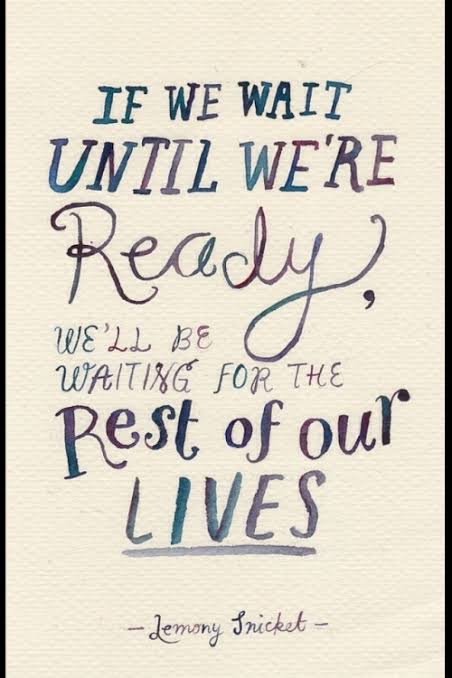 IF WE WAIT
UNTIL WE'RE
Ready,
WE'LL BE
WAITING FOR THE
Rest of our
LIVES
— Lemony Snicket —